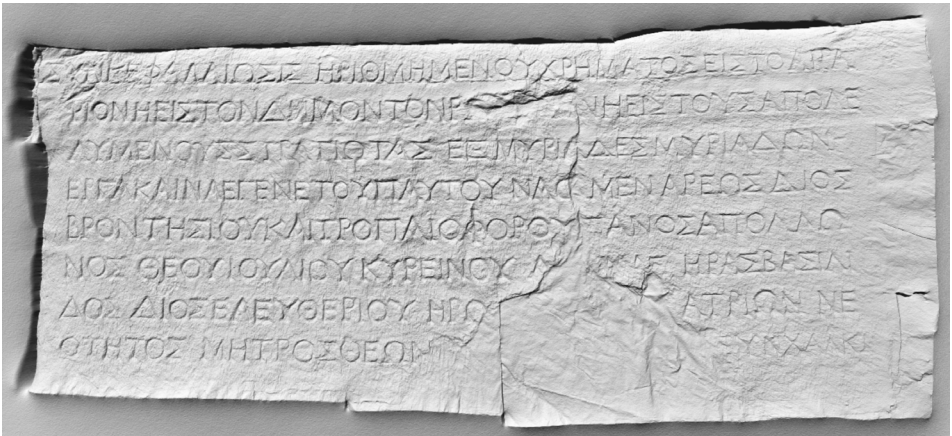 ΣΥΝΚΕΦΑΛΑΙΩΣΙΣ ΗΡΙΘΜΗΜΕΝΟΥΧΡΗΜΑΤΟΣΕΙΣΤΟΑΙΡΑ
ΡΙΟΝΗΕΙΣΤΟΝΔΗΜΟΝΤΟΝΡΩ ΑΝΗΕΙΣΤΟΥΣΑΠΟΛΕ
ΛΥΜΕΝΟΥΣΣΤΡΑΤΙΩΤΑΣ ΕΙΞΜΥΡΙΑΔΕΣΜΥΡΙΑΔΩΝ
ΕΡΓΑΚΑΙΝΑΕΓΕΝΕΤΟΥΠΑΥΤΟΥ ΝΑΟΙ ΜΕΝΑΡΕΩΣΔΙΟΣ
ΒΡΟΝΤΗΣΙΟΥΚΑΙΤΡΟΠΑΙΟΦΟΡΟΥΠΑΝΟΣΑΠΟΛΛΩ
ΝΟΣ ΘΕΟΥΙΟΥΛΙΟΥΚΥΡΕΙΝΟΥ Α ΗΡΑΣΒΑΣΙΛΙ
ΔΟΣ ΔΙΟΣΕΛΕΥΘΕΡΙΟΥ ΗΡΩ ΑΤΡΙΩΝ ΝΕ
ΟΤΗΤΟΣ ΜΗΤΡΟΣΘΕΩΝ ΣΥΝΧΑΛΚΙ